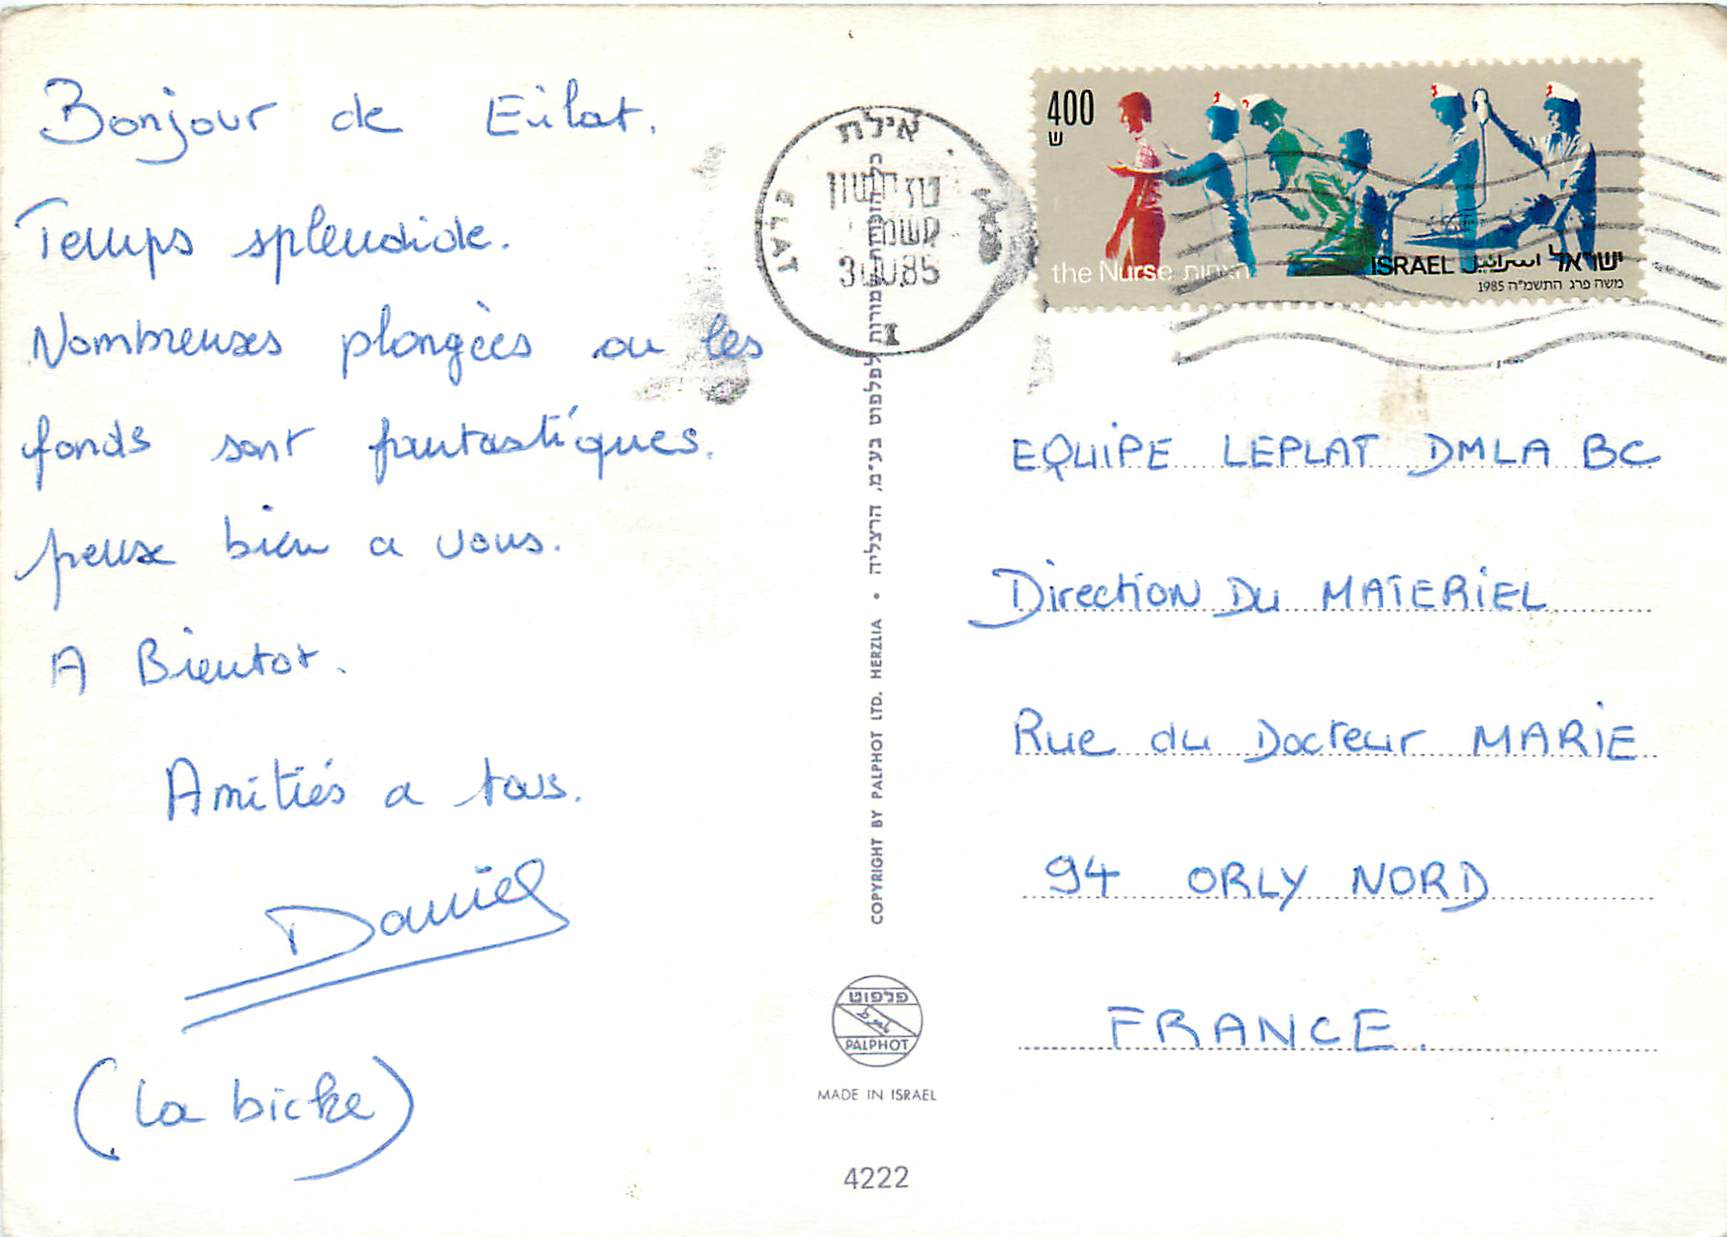 Bonjour de Eilat.
Temps splendide.
Nombreuses plongées ou les
fonds sont fantastiques.
pense bien a vous.
A Bientot.
Amitiés a tous.
Daniel
(la biche)
אילת
ELAT
400
ש
the Nurse
ISRAEL اسرائيل ישראל
משה פרג התשמ"ה 1985
EQUIPE LEPLAT DMLA BC
Direction Du MATERIEL
Rue du Docteur MARIE
94 ORLY NORD
FRANCE.
לפלפוט בע"מ, הרצליה • COPYRIGHT BY PALPHOT LTD. HERZLIA
פלפוט
PALPHOT
MADE IN ISRAEL
4222